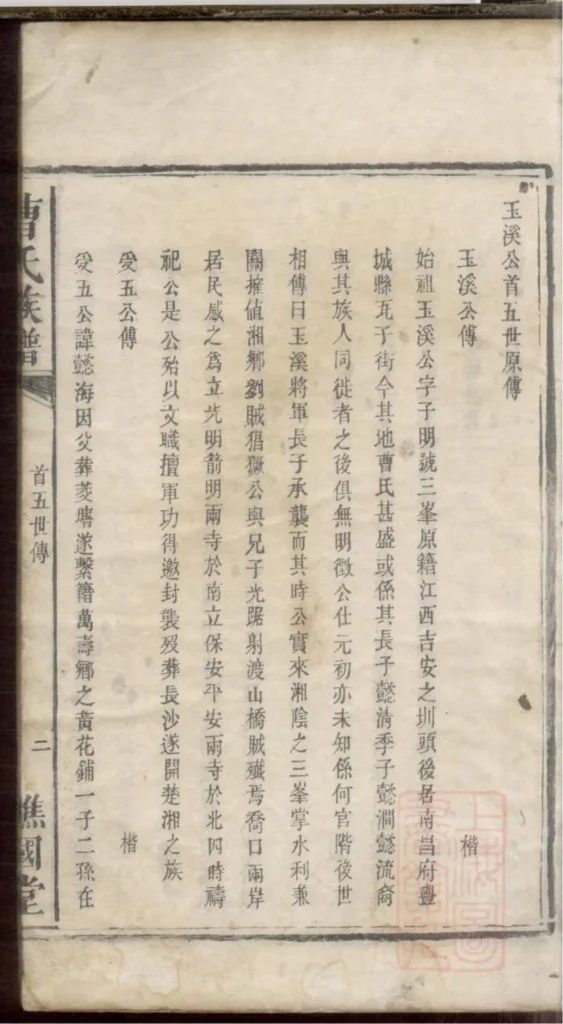 玉溪公首五世原傳
玉溪公傳 楷
始祖玉溪公字子明號三峯原籍江西吉安之圳頭後居南昌府豐
城縣瓦子街今其地曹氏甚盛或係其長子懿清季子懿澗懿流裔
與其族人同徙者之後俱無明徵公仕元初亦未知係何官階後世
相傳曰玉溪將軍長子承襲而其時公實來湘陰之三峯掌水利兼
關搉值湘鄉劉賊猖獗公與兄子光踞射渡山橋賊殲焉喬口兩岸
居民感之為立光明箭明兩寺於南立保安平安兩寺於北四時禱
祀公是公殆以文職擅軍功得邀封襲歿葬長沙遂開楚湘之族
受五公傳 楷
受五公諱懿海因父葬菱塘遂繫籍萬壽鄉之黃花鋪一子二孫在
曹氏族譜
首五世傳
二
譙國堂